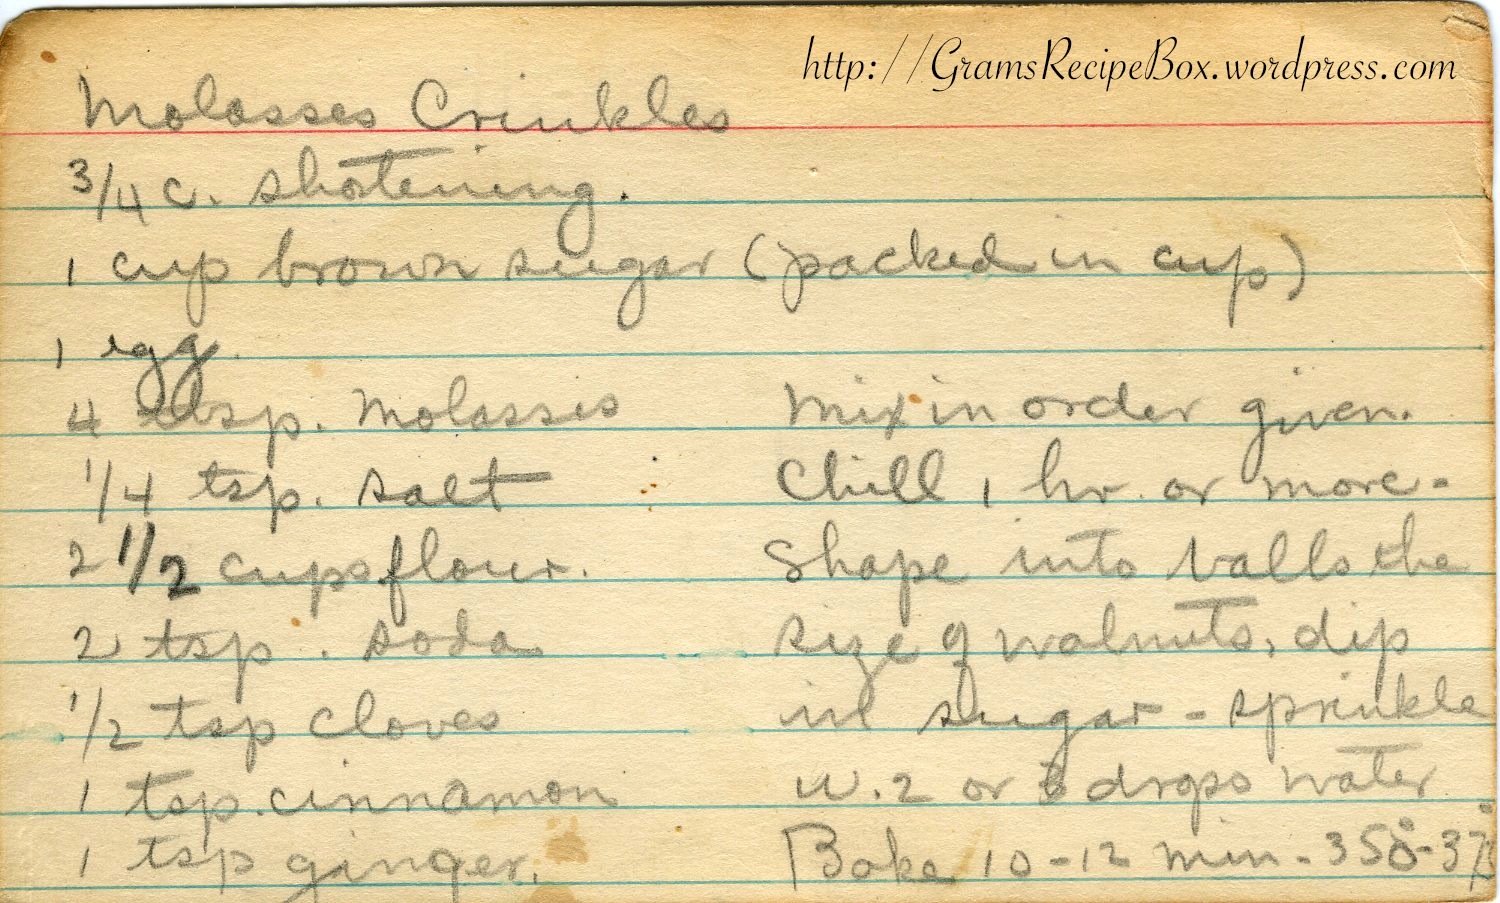 http://GramsRecipeBox.wordpress.com
Molasses Crinkles
3/4 c. shotening.
1 cup brown sugar (packed in cup)
1 egg.
4 tbsp. Molasses
1/4 tsp. salt
2 1/2 cups flour.
2 tsp. soda
1/2 tsp cloves
1 tsp. cinnamon
1 tsp ginger.
Mix in order given.
Chill 1 hr. or more-
Shape into balls the
size of walnuts, dip
in sugar - sprinkle
w. 2 or 3 drops water
Bake 10-12 min - 350°-375°